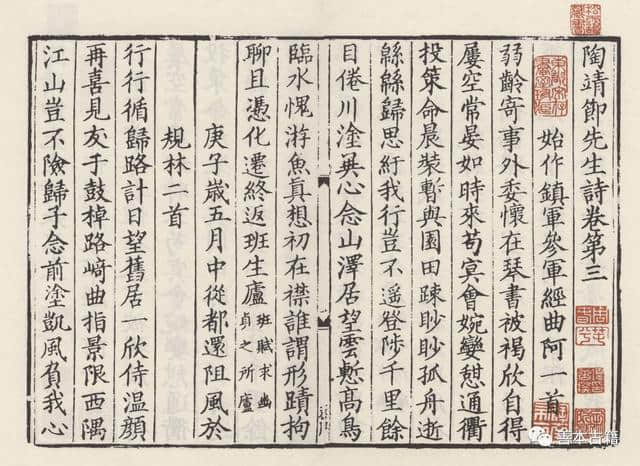 陶靖節先生詩卷第三
始作鎮軍參軍經曲阿一首
弱齡寄事外委懷在琴書被褐欣自得
屢空常晏如時來苟冥會婉孌憇通衢
投策命晨裝暫與園田踈眇眇孤舟逝
緜緜歸思紆我行豈不遥登陟千里餘
目倦川塗異心念山澤居望雲慙高鳥
臨水愧游魚真想初在襟誰謂形蹟拘
聊且憑化遷終返班生廬班賦求幽
貞之所廬
庚子歲五月中從都還阻風於
規林二首
行行循歸路計日望舊居一欣侍温顔
再喜見友于鼓棹路崎曲指景限西隅
江山豈不險歸子念前塗凱風負我心
善本古籍